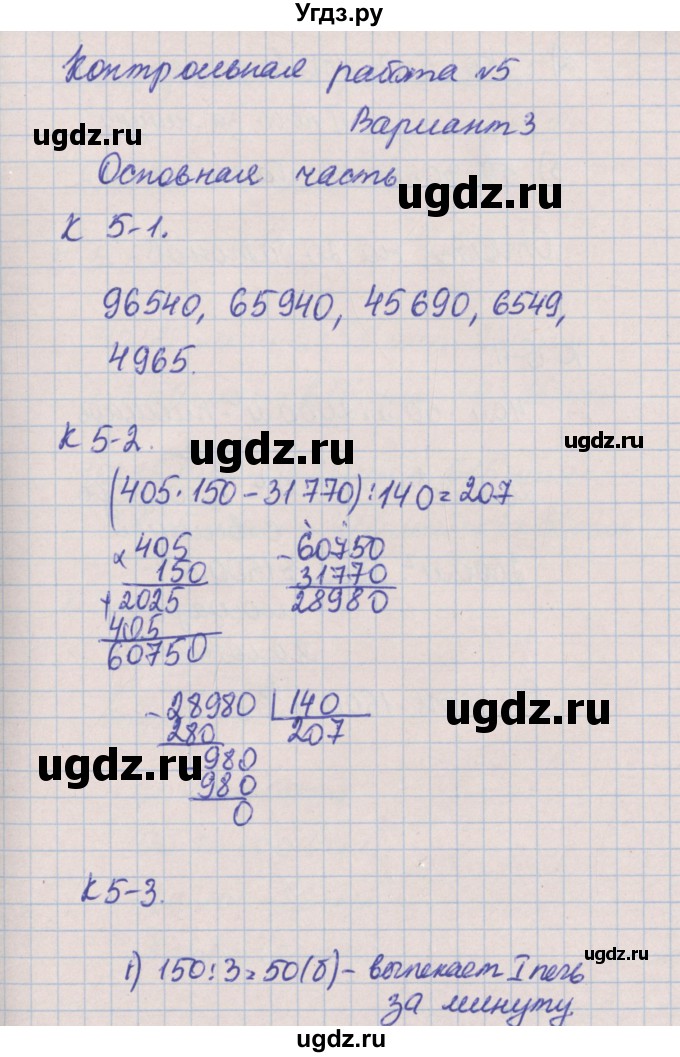 Угдз.ру
Контрольная работа №5
ugdz.ru
Вариант 3
Основная часть
ugdz.ru
К 5-1.
96540, 65940, 45690, 6549,
4965.
К 5-2.
ugdz.ru
ugdz.ru
(405·150-31770):140=207
× 405
150
+2025
405
60750
-60750
31770
28980
-28980 140
280 207
-980
980
0
ugdz.ru
ugdz.ru
К 5-3.
1) 150:3=50(б)- выпекает I печь
за минуту
ugdz.ru
ugdz.ru